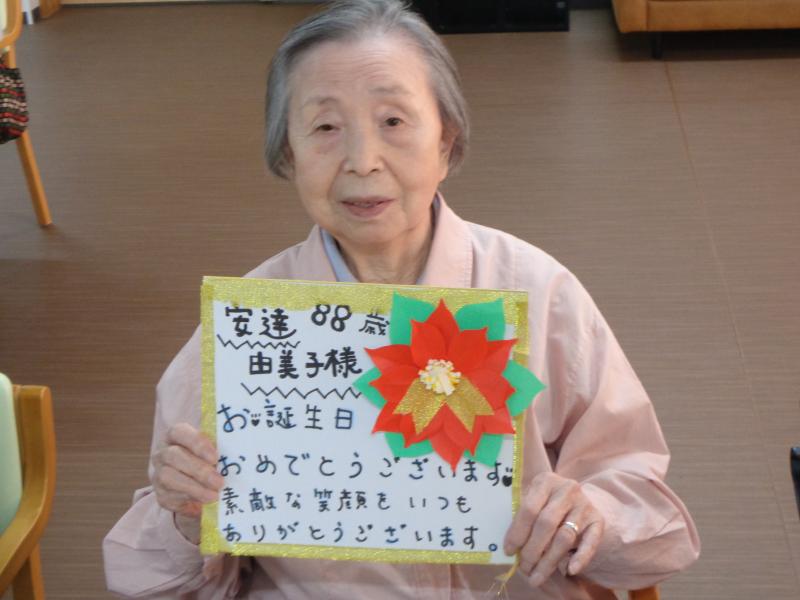 安達 88歳
由美子様
お♥誕生日
おめでとうございます♥
素敵な笑顔をいつも
ありがとうございます。